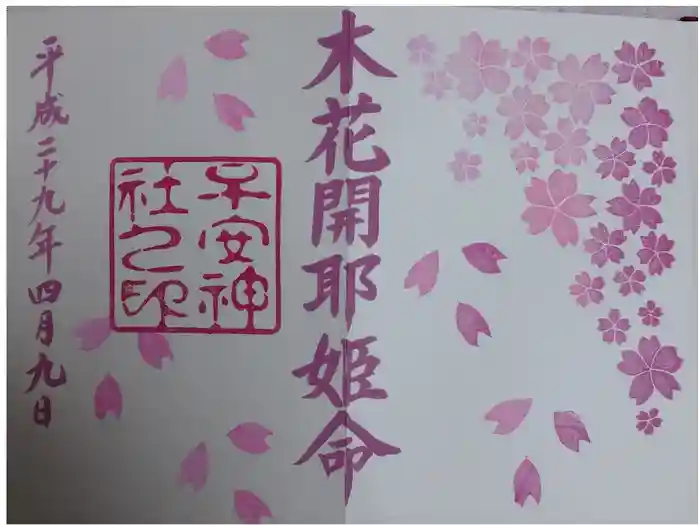 木花開耶姫命
子安神
社之印
平成二十九年四月九日